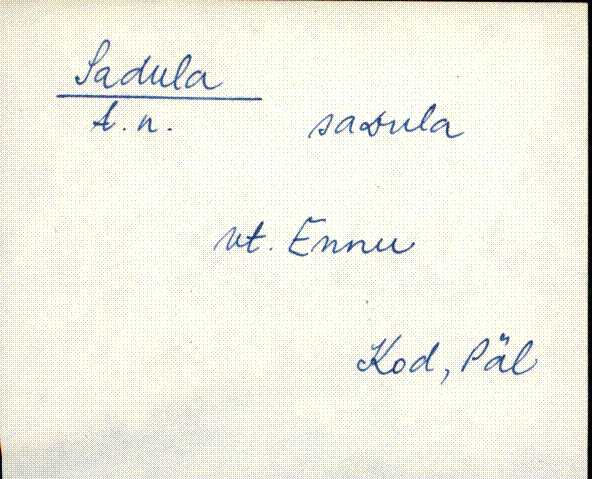 Sadula
t.n. saᴅula
vt. Ennu
Kod, Päl